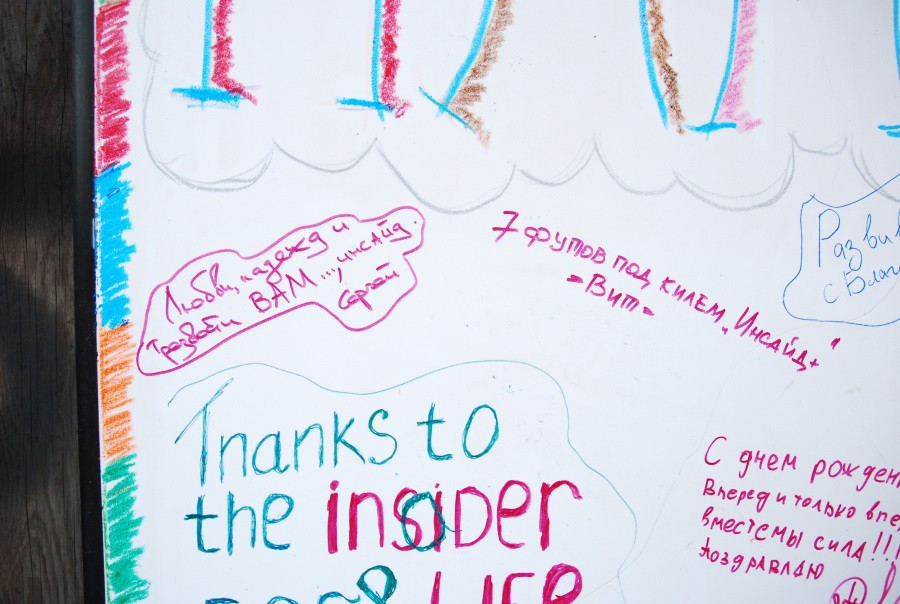 Любви, надежд и
трезвости ВАМ..., инсайд.
Сергей
7 футов под килем, „Инсайд"
-Вит-
Развив
с Благ
Thanks to
the insider
LIFE
С днем рожден
Вперед и только впе
вместе мы сила!!!
Поздравляю